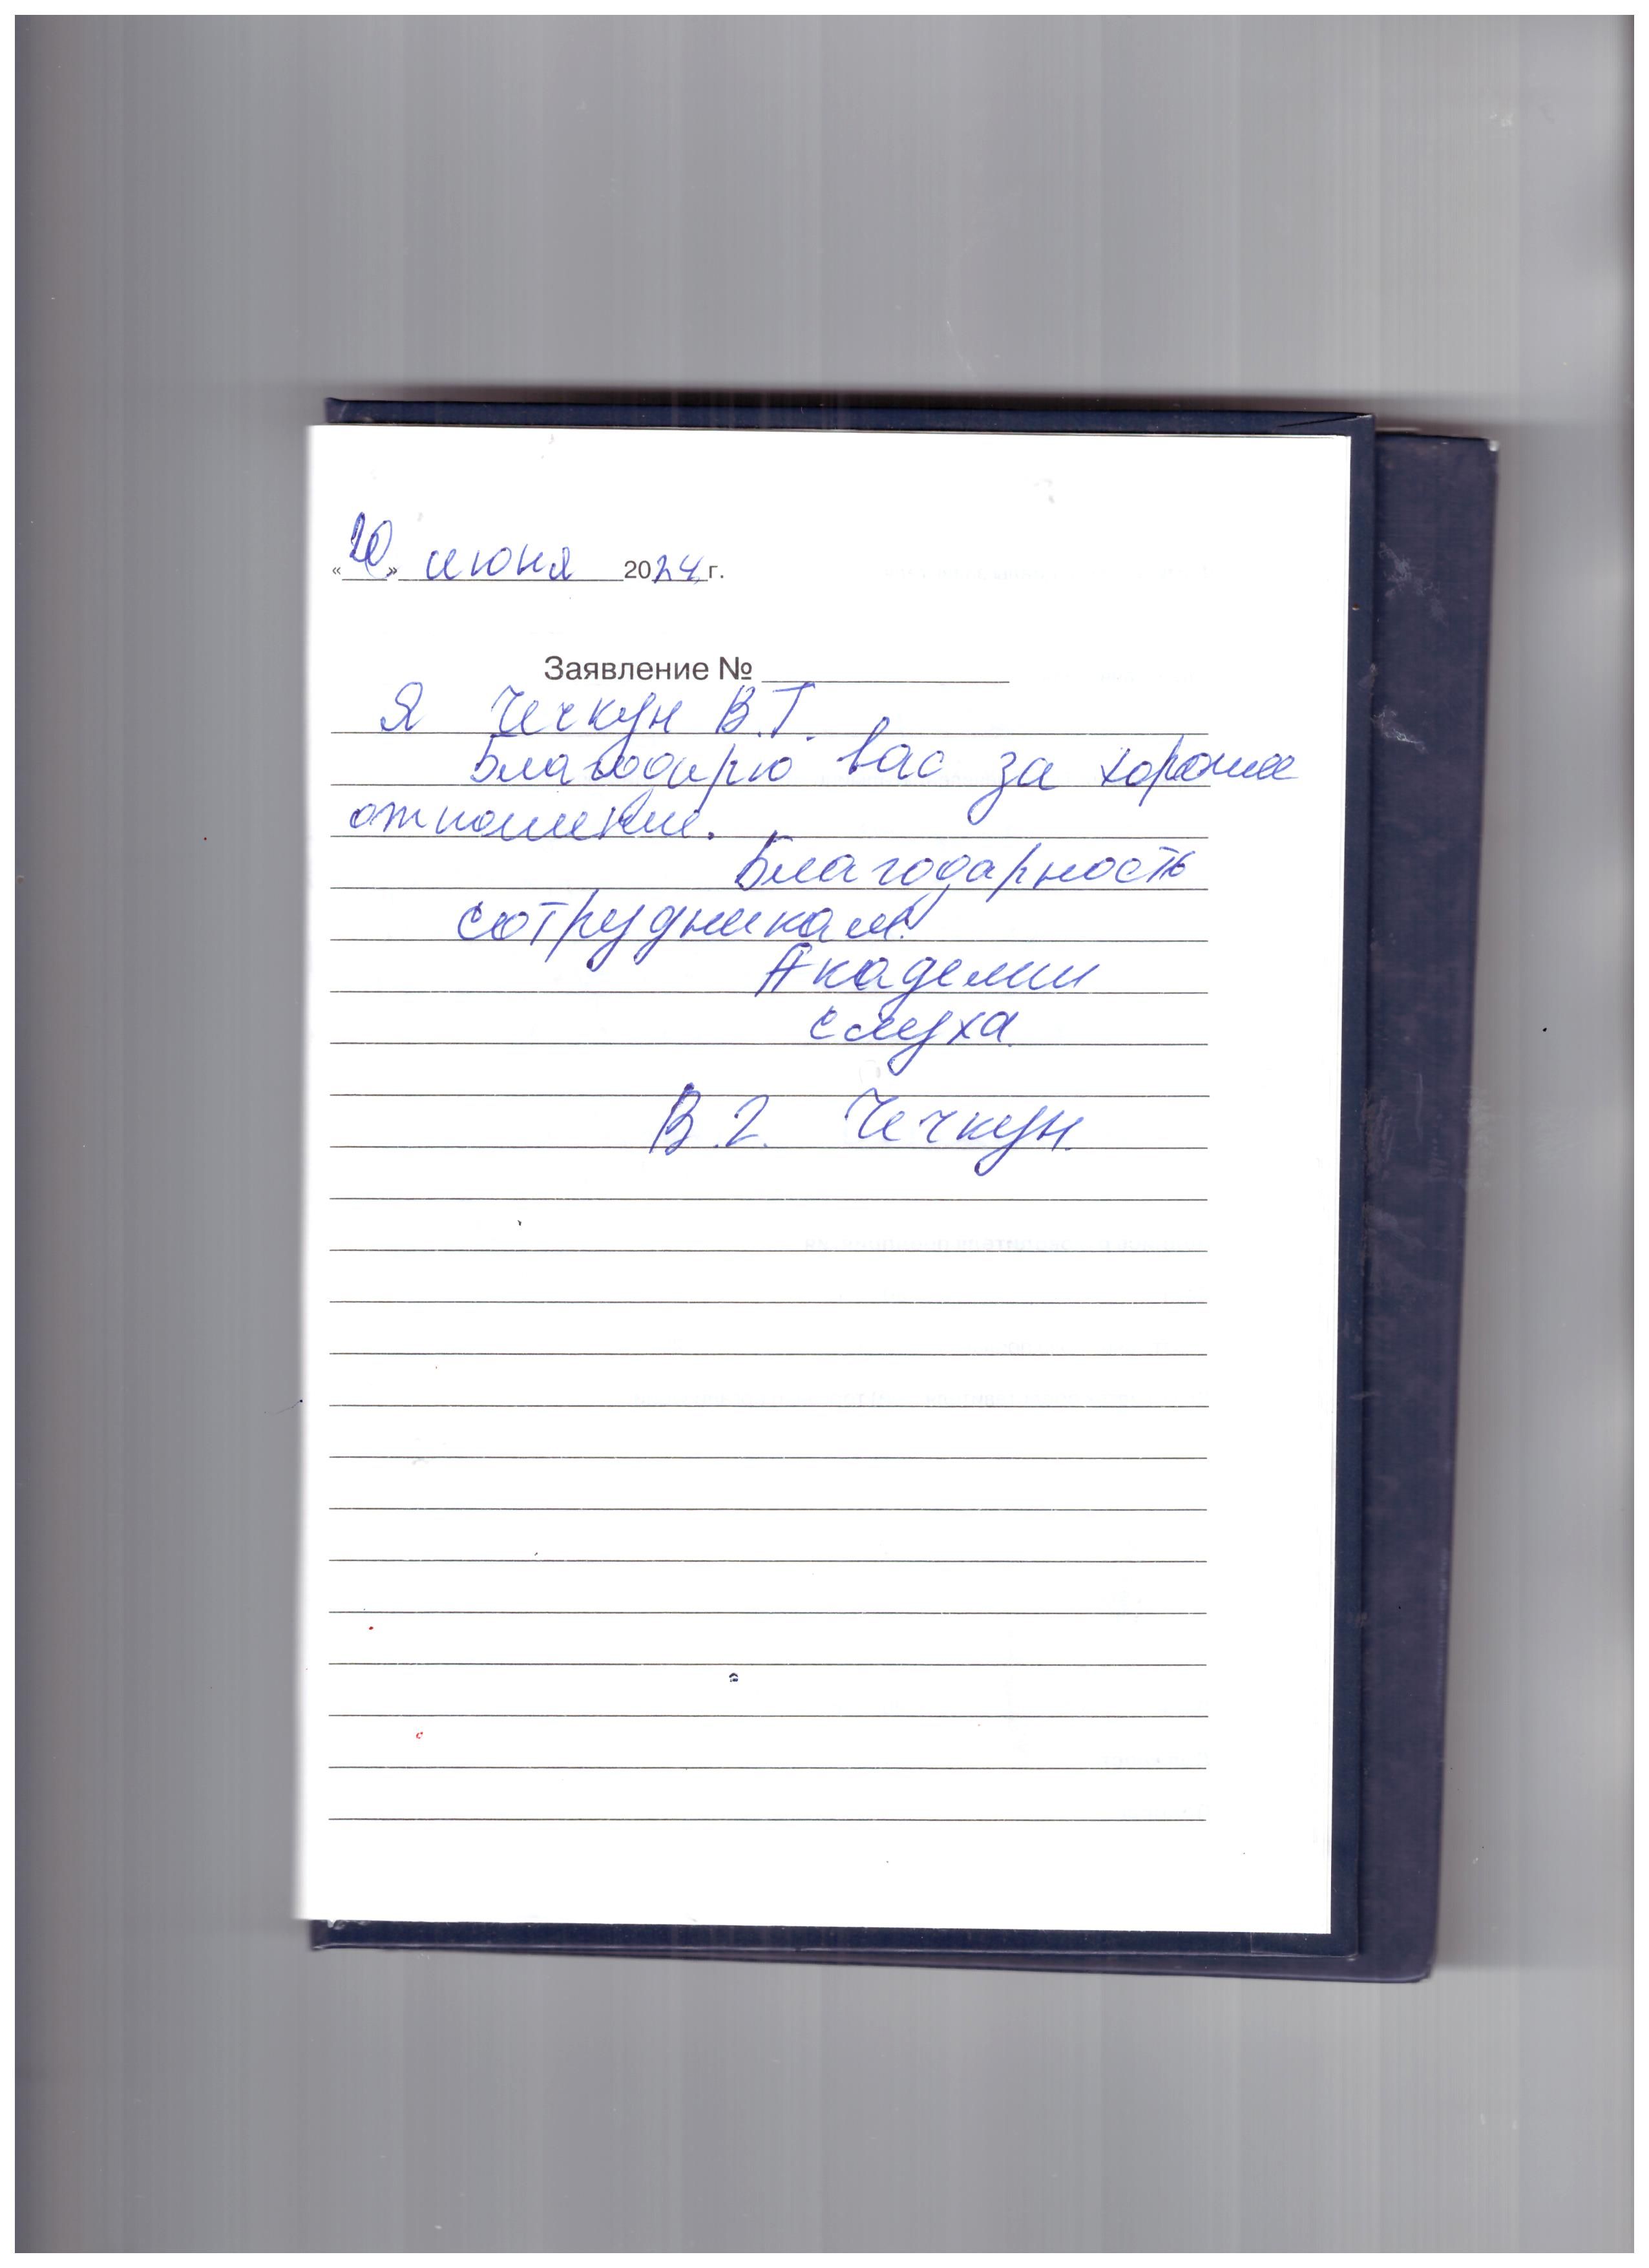 «20» июня 2024 г.
Заявление №
Я Чечкун В.Г.
Благодарю вас за хорошее
отношение.
Благодарность
сотрудникам
Академии
слуха
В.Г. Чечкун.